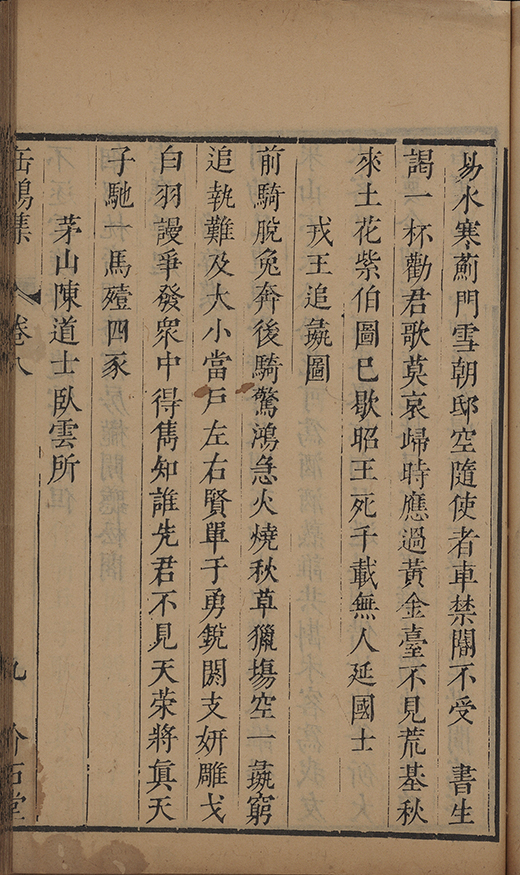 易水寒薊門雪朝邸空隨使者車禁闥不受 書生
謁一杯勸君歌莫哀歸時應過黃金臺不見荒基秋
來土花紫伯圖已歇昭王死千載無人延國士
戎王追彘圖
前騎脫兔奔後騎驚鴻急火燒秋草獵塲空一彘窮
追執難及大小當戶左右賢單于勇銳閼支妍雕戈
白羽謾爭發衆中得雋知誰先君不見天荣將眞天
子馳一馬殪四豕
茅山陳道士臥雲所
缶鳴集 卷八 九 介石堂